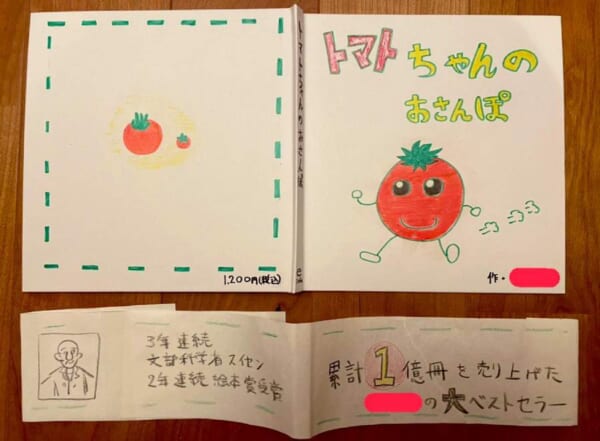 トマトちゃんの
おさんぽ
作・
トマトちゃんのおさんぽ
1,200円(税込)
3年連続
文部科学省スイセン
2年連続 絵本賞受賞
累計1億冊を売り上げた
の大ベストセラー